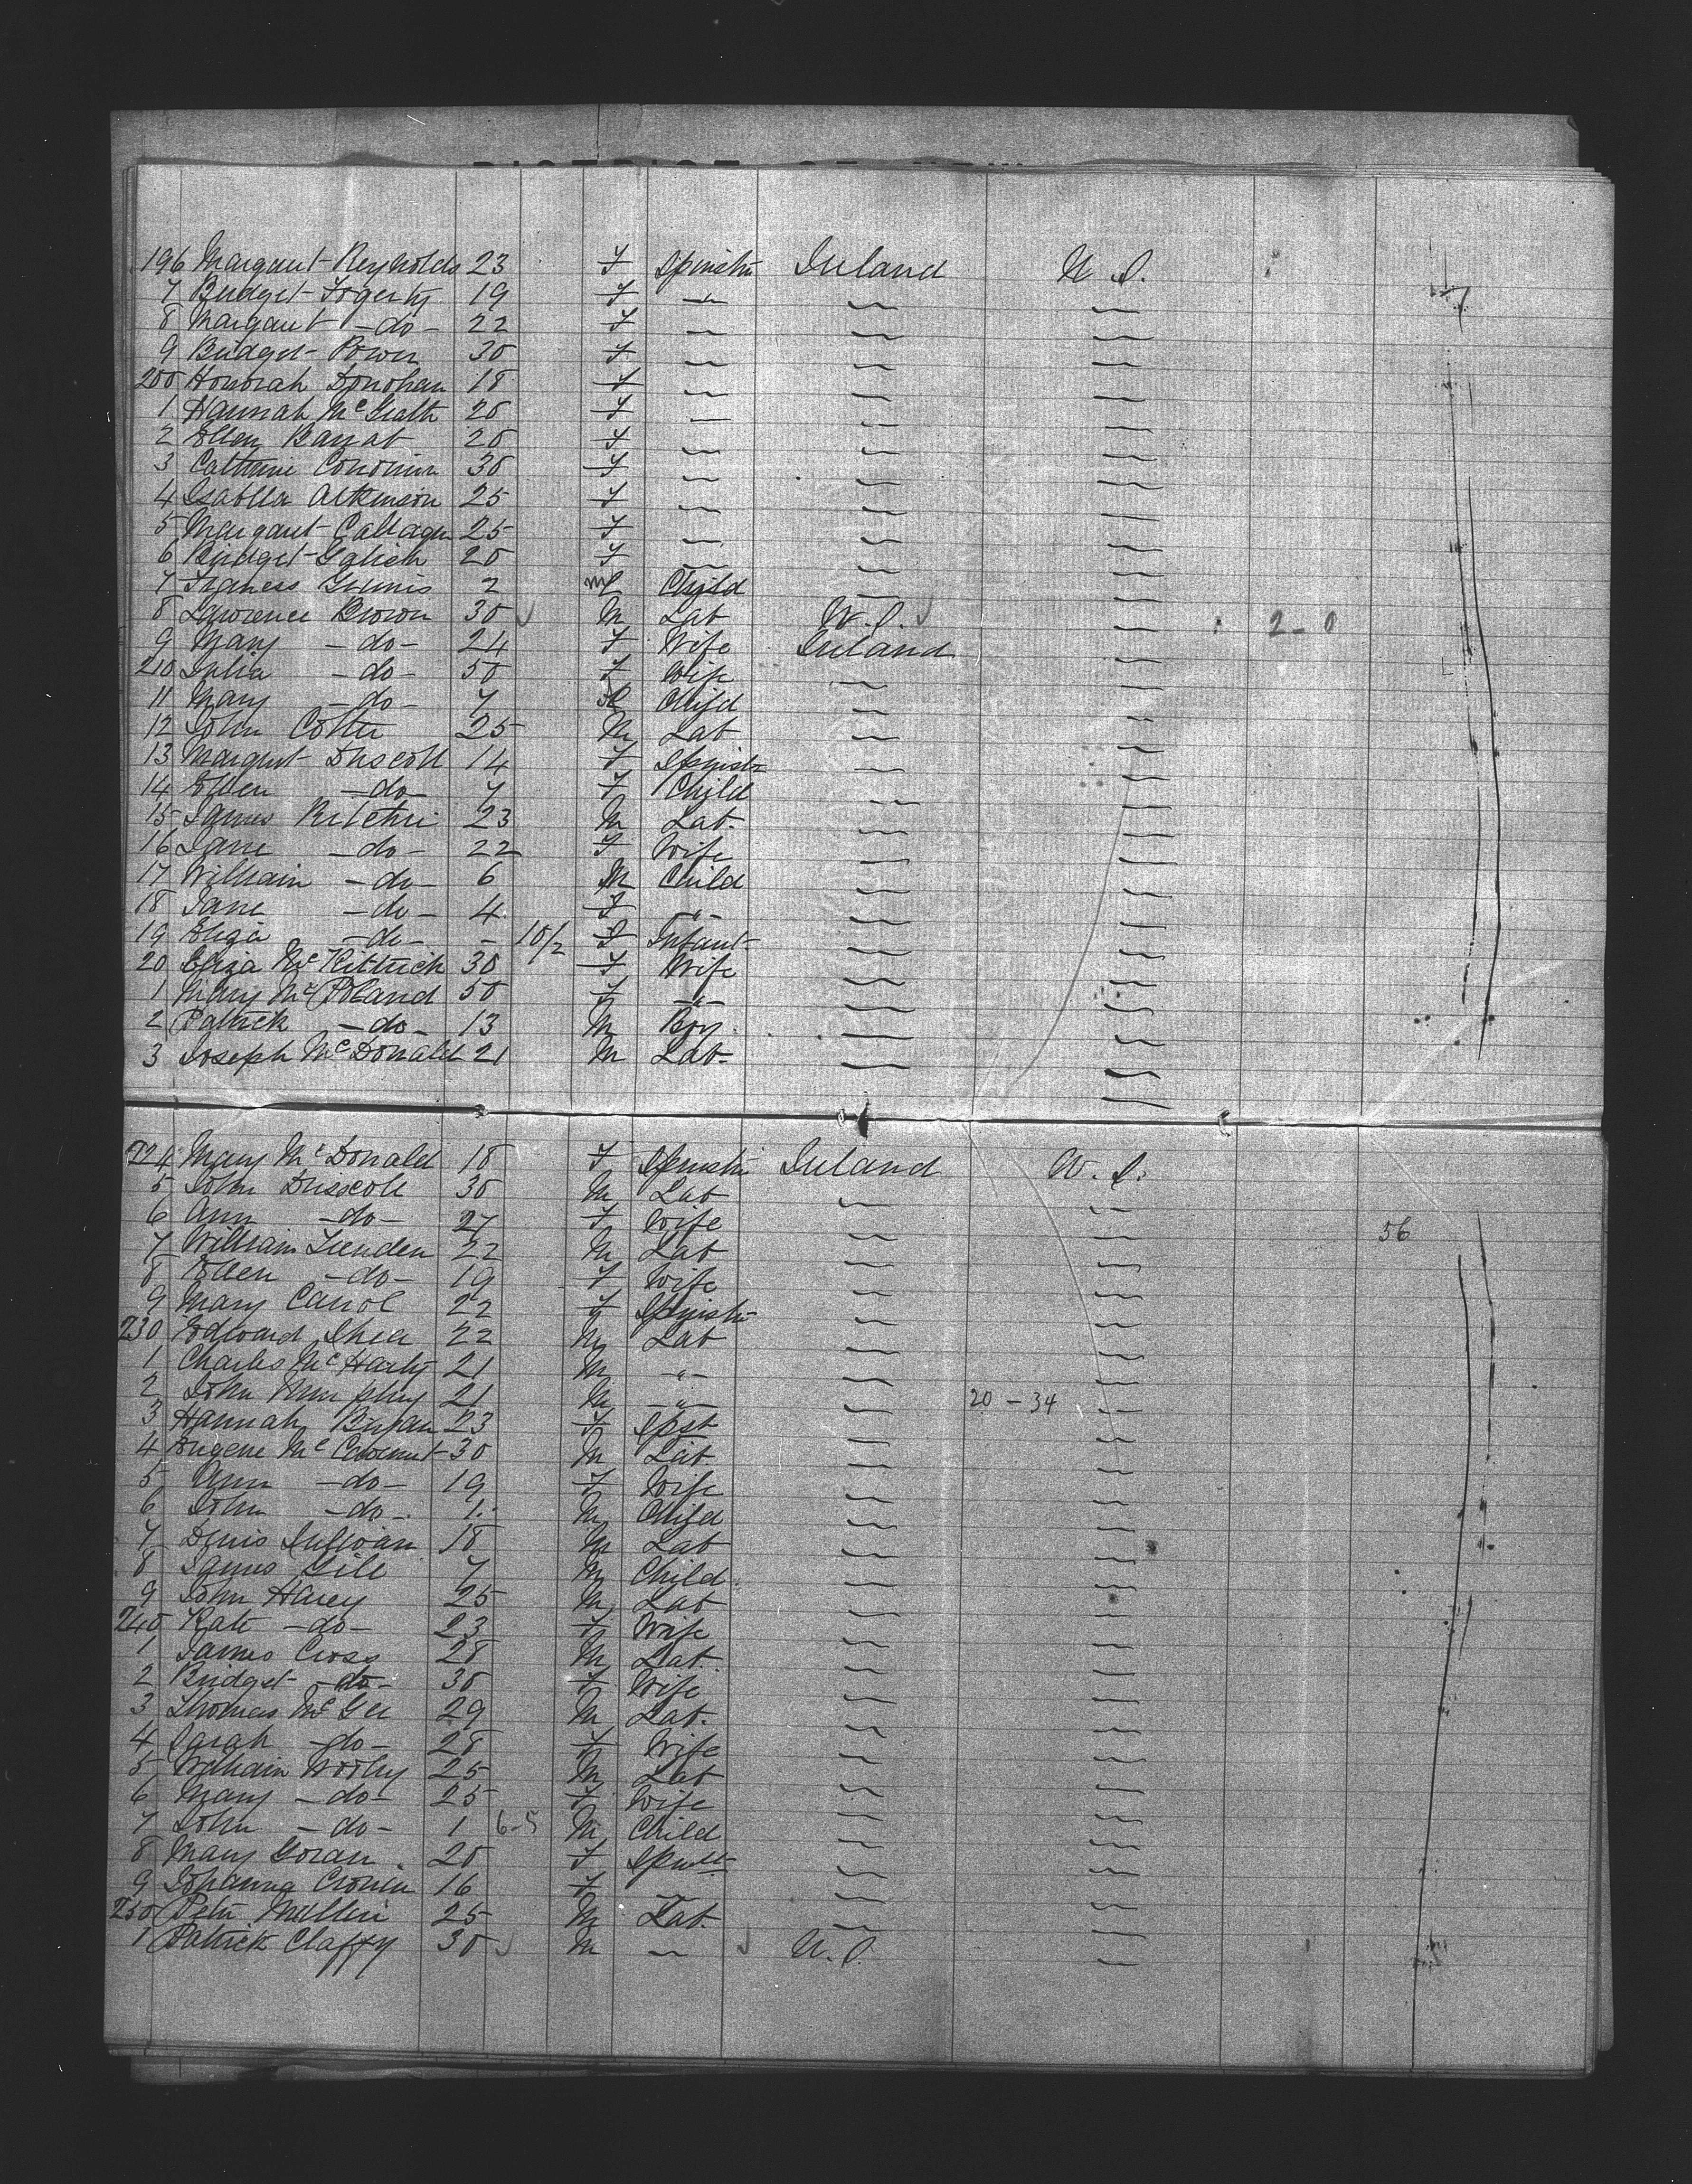 196 Margaret Reynolds 23 F Spinstr Ireland U. S.
7 Bridget Fogerty 19 F
8 Margaret -do- 22 F
9 Bridget Power 30 F
200 Honorah Donohan 18 F
1 Hannah McGrath 20 F
2 Ellen Barrat 20 F
3 Catherine 30 F
4 Isabella Atkinson 25 F
5 Margaret Callagan 25 F
6 Bridget 20 F
7 Francess 2 Child
8 Lawrence Brown 30 M Lab U. S. 2-0
9 Mary -do- 24 F Wife Ireland
210 Julia -do- 50 F Wife
11 Mary -do- 7 Child
12 John Cotter 25 M Lab
13 Margret Driscoll 14 F Spinstr
14 Ellen -do- 7 F Child
15 James Ritchie 23 M Lab.
16 Jane -do- 22 F Wife
17 William -do- 6 M Child
18 Jane -do- 4 F "
19 Eliza -do- - 10/2 F Infant
20 Eliza McKittrick 30 F Wife
1 Mary McPoland 50 F "
2 Patrick -do- 13 M Boy
3 Joseph McDonald 21 M Lab-
224 Mary McDonald 18 F Spinstr Ireland U. S.
5 John Driscoll 30 M Lab
6 Ann -do- 27 F Wife 56
7 William 22 M Lab
8 Ellen -do- 19 F Wife
9 Mary Carrol 22 F Spinstr
230 Edward Shea 22 M Lab
1 Charles McHarty 21 M - " -
2 John Murphy 21 M - " - 20 - 34
3 Hannah 23 F Spst
4 Eugene Mc 30 M Lab
5 Ann -do- 19 F Wife
6 John -do- 1 M Child
7 Denis Sullivan 18 M Lab
8 James Gill 7 M Child
9 John Harey 25 M Lab
240 Kate -do- 23 F Wife
1 James Cross 28 M Lab
2 Bridget -do- 30 F Wife
3 Thomas McGee 29 M Lab.
4 Sarah -do- 28 F Wife
5 William 25 M Lab
6 Mary -do- 25 F Wife
7 John -do- 1 6-5 M Child
8 Mary Goran 20 F
9 Johanna Cronin 16 F
250 Peter Mullin 25 M Lab.
1 Patrick Claffy 30 M U. S.